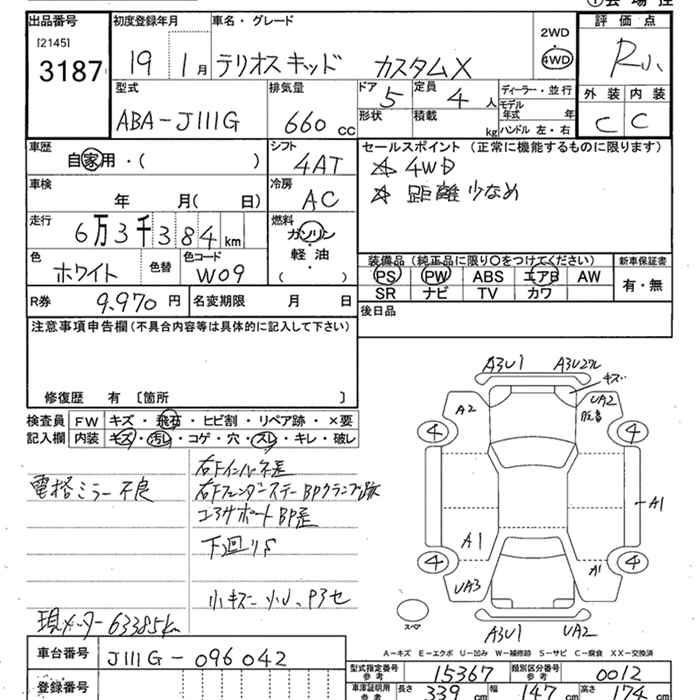 ①会場控
出品番号 初度登録年月 車名・グレード 2WD 評価点
[2145]
3187 19 1月 テリオスキッド カスタムX 4WD R小
型式 排気量 ドア 5 定員 4人 ディーラー・並行 外装 内装
ABA-J111G 660cc 形状 積載 kg モデル年式 年 C C
ハンドル 左・右
車歴 シフト セールスポイント (正常に機能するものに限ります)
自家用・( ) 4AT ☆ 4WD
車検 冷房 ☆ 距離少なめ
年 月( 日) AC
走行 燃料
6万3千384km ガソリン
色 色替 色コード 軽油 装備品(純正品に限り○をつけてください) 新車保証書
ホワイト W09 ( ) PS PW ABS エアB AW 有・無
R券 9,970円 名変期限 月 日 SR ナビ TV カワ
注意事項申告欄(不具合内容等は具体的に記入して下さい) 後日品
修復歴 有 [箇所 ]
A3U1 A3U2ワレ
キズ
A2 UA2
検査員 FW キズ・飛石・ヒビ割・リペア跡・×要
記入欄 内装 キズ・汚レ・コゲ・穴・スレ・キレ・破レ
4 4
右Fインパネ歪
電格ミラー不良 右FフェンダーステーBPクランプ跡
コアサポートBP歪
A1
下回りS
A1 A1
4 4
UA3
小キズ
現メーター63385km
スペア A3U1 UA2
A-キズ E-エクボ U-凹み W-補修跡 S-サビ C-腐食 XX-交換済
車台番号 J111G-096042
型式指定番号 参考 15367 類別区分番号 参考 0012
登録番号 車庫証明用 参考 長さ 339cm 幅 147cm 高さ 174cm